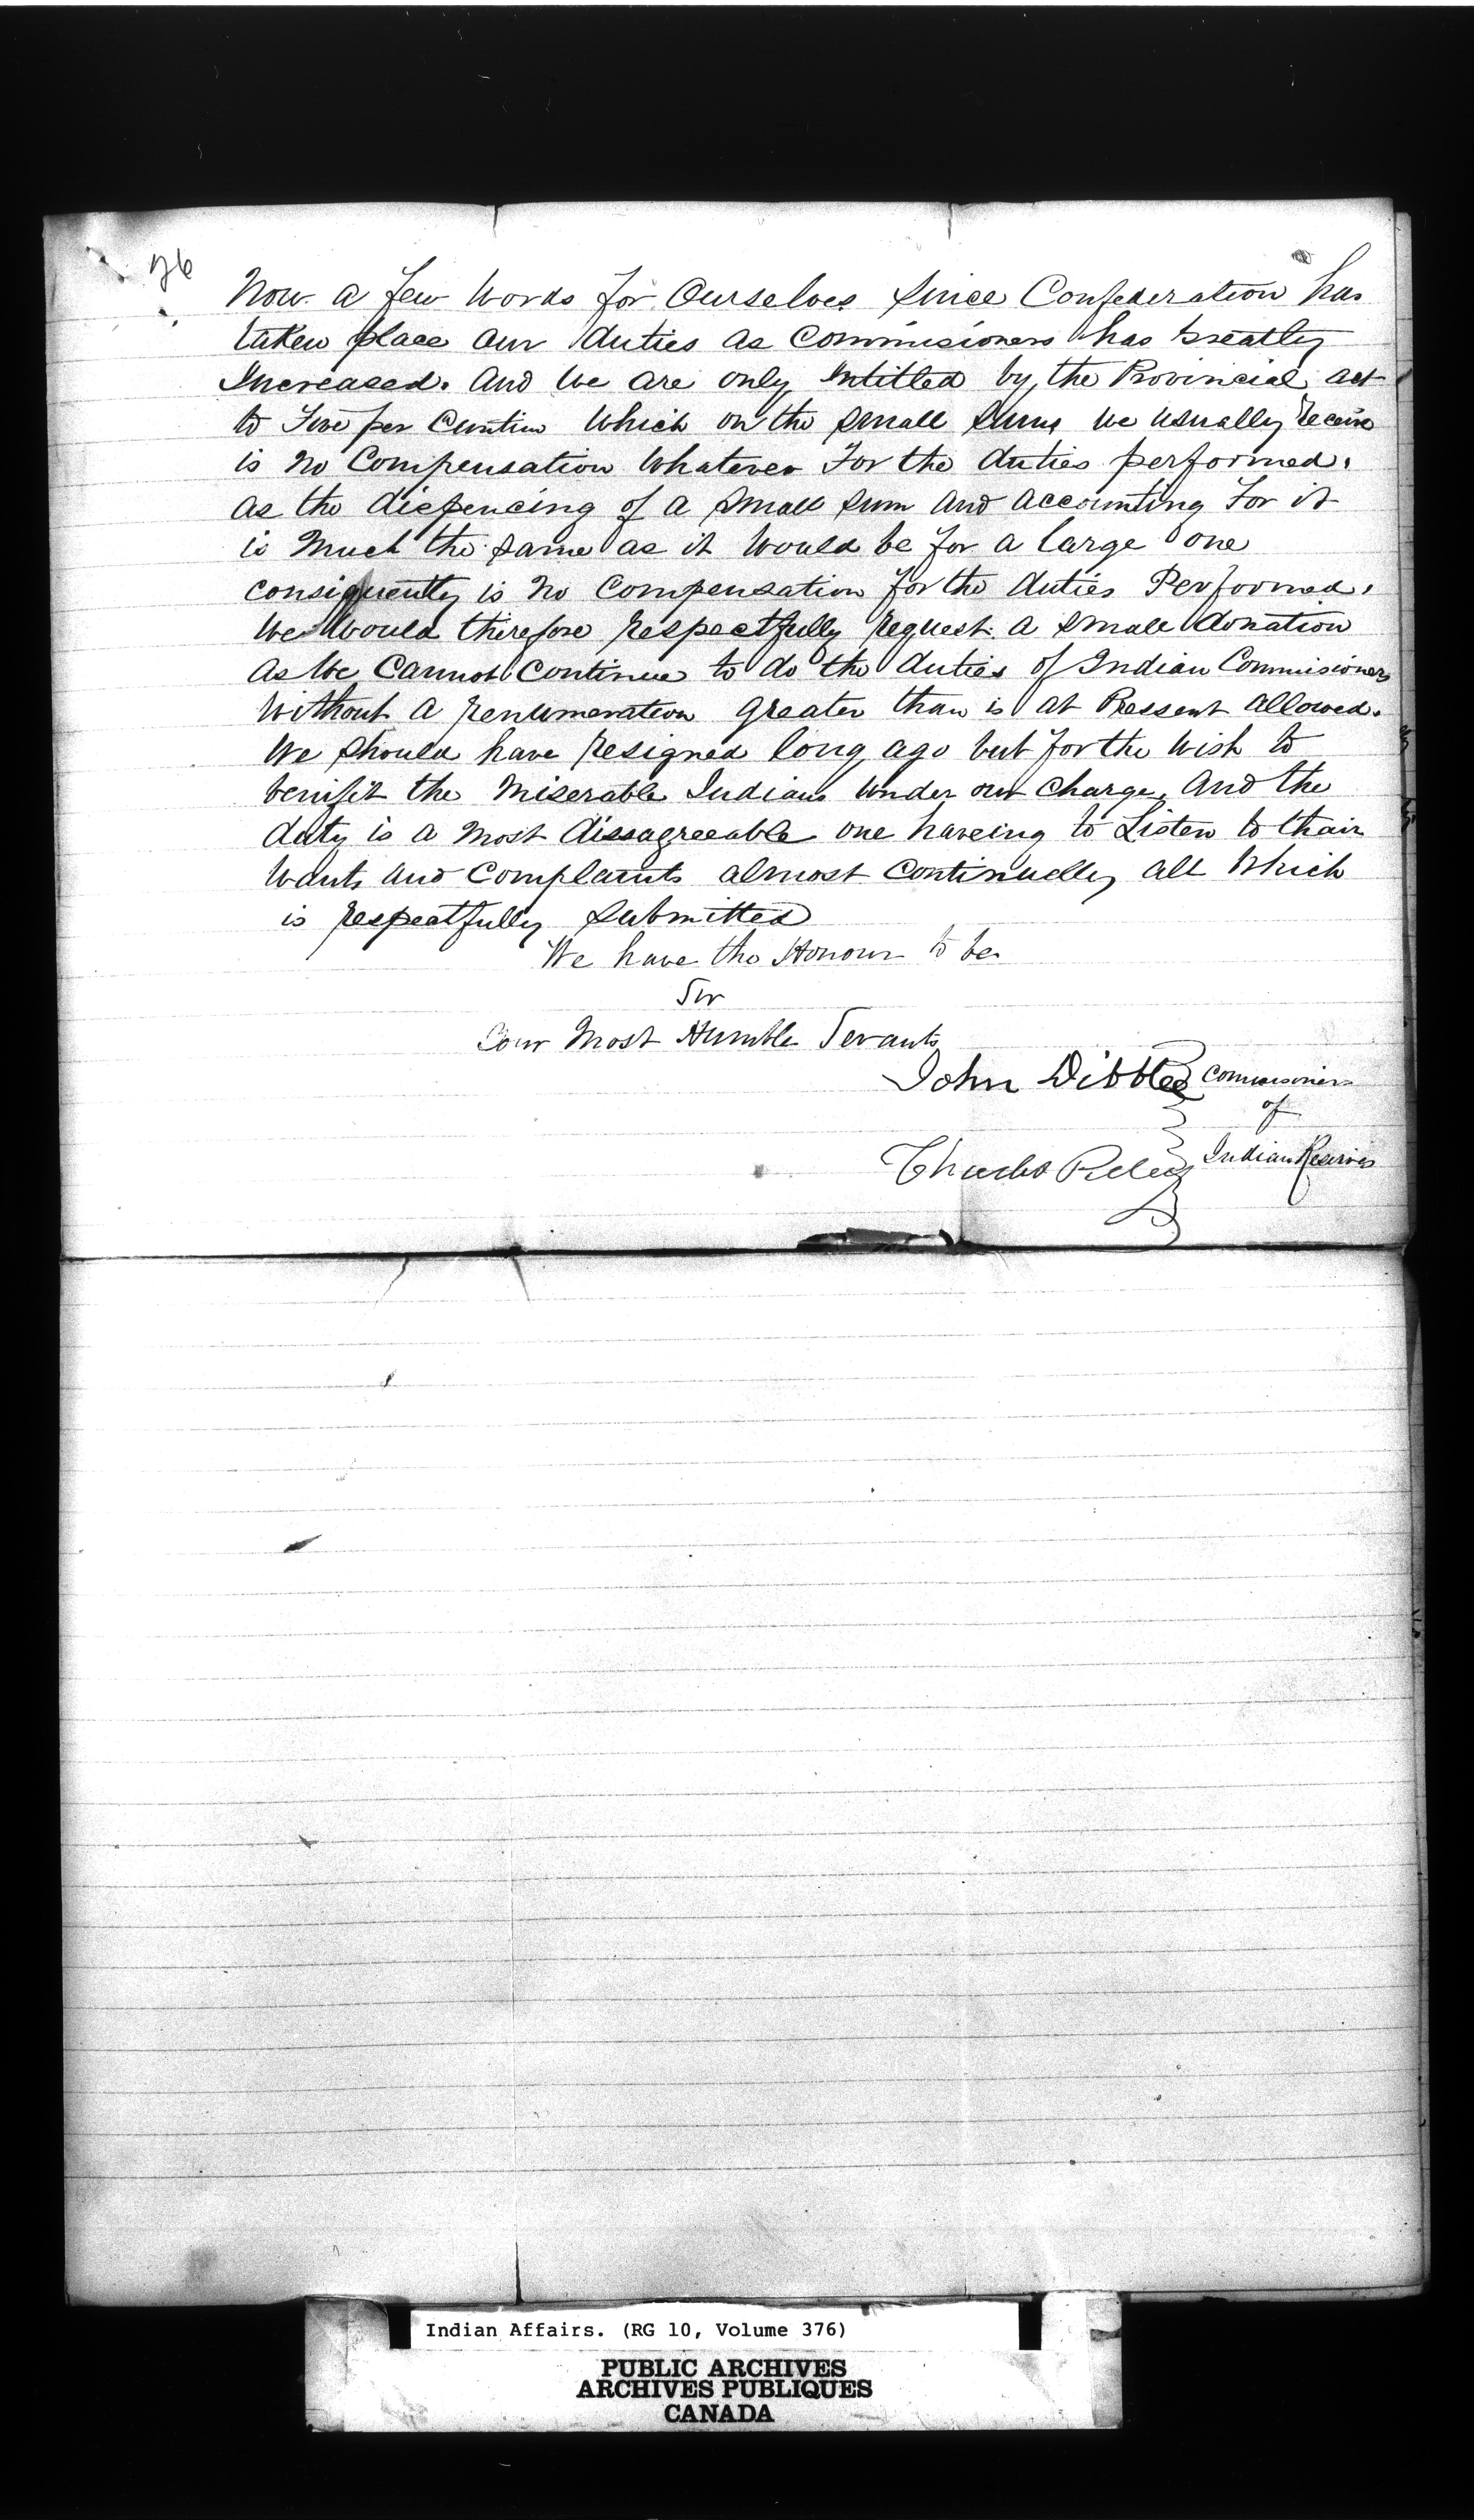 76
Now a few Words for Ourselves Since Confederation has
taken place our duties as Commisioners has Greatly
Increased. And We are only Intitled by the Provincial act
to Five per Centim Which on the Small Sums We usually Receive
is no Compensation Whatever For the duties performed.
as the dispencing of a Small Sum and accounting For it
is Much the same as it Would be for a large one
consiquently is no Compensation for the duties Performed.
We Would therefore Respectfully Request a Small donation
as We Cannot Continue to do the duties of Indian Commisioners
Without a Renumeration greater than is at Pressent allowed.
We Should have Resigned long ago but for the Wish to
benifit the Miserable Indians Under our Charge, And the
duty is a Most dissagreeable one haveing to Listen to thair
Wants and Complaints almost Continuelly all Which
is Respectfully Submitted
We have the Honour to be
Sir
Your Most Humble Servants
John Dibblee Commisioners
of
Charles Indian Reserves
Indian Affairs. (RG 10, Volume 376)
PUBLIC ARCHIVES
ARCHIVES PUBLIQUES
CANADA